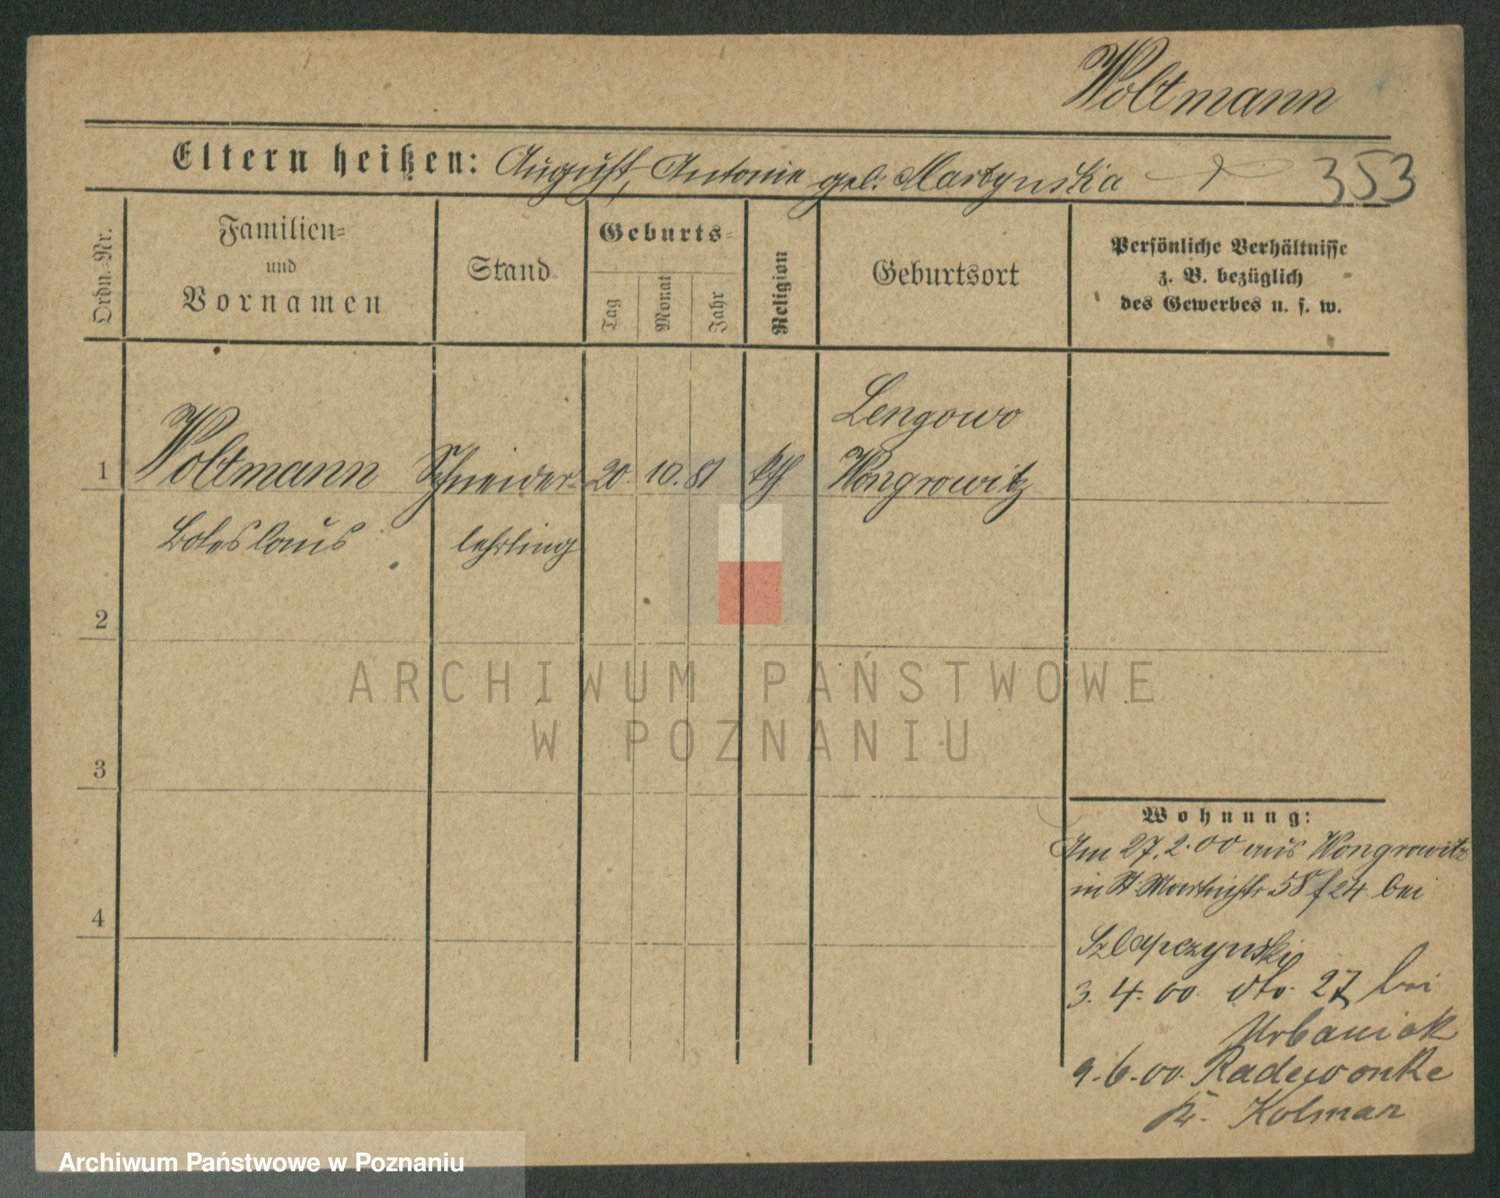 Woltmann
Eltern heißen: August, Antonie geb. Martynska 353
Ordn.-Nr.
Familien- und Vornamen
Stand
Geburts-
Tag Monat Jahr
Religion
Geburtsort
Persönliche Verhältnisse
z. B. bezüglich
des Gewerbes u. s. w.
Lengowo
1 Woltmann Schneider- 20. 10. 81 kth Wongrowitz
Boleslaus lehrling
2
ARCHIWUM PAŃSTWOWE
W POZNANIU
3
Wohnung:
Im 27.2.00 aus Wongrowitz
in St. Martinstr. 58 f 24 bei
4
Szlapczynski
3. 4. 00. dto. 27 bei
Urbaniak
9. 6. 00. Radewonke
Kr. Kolmar
Archiwum Państwowe w Poznaniu